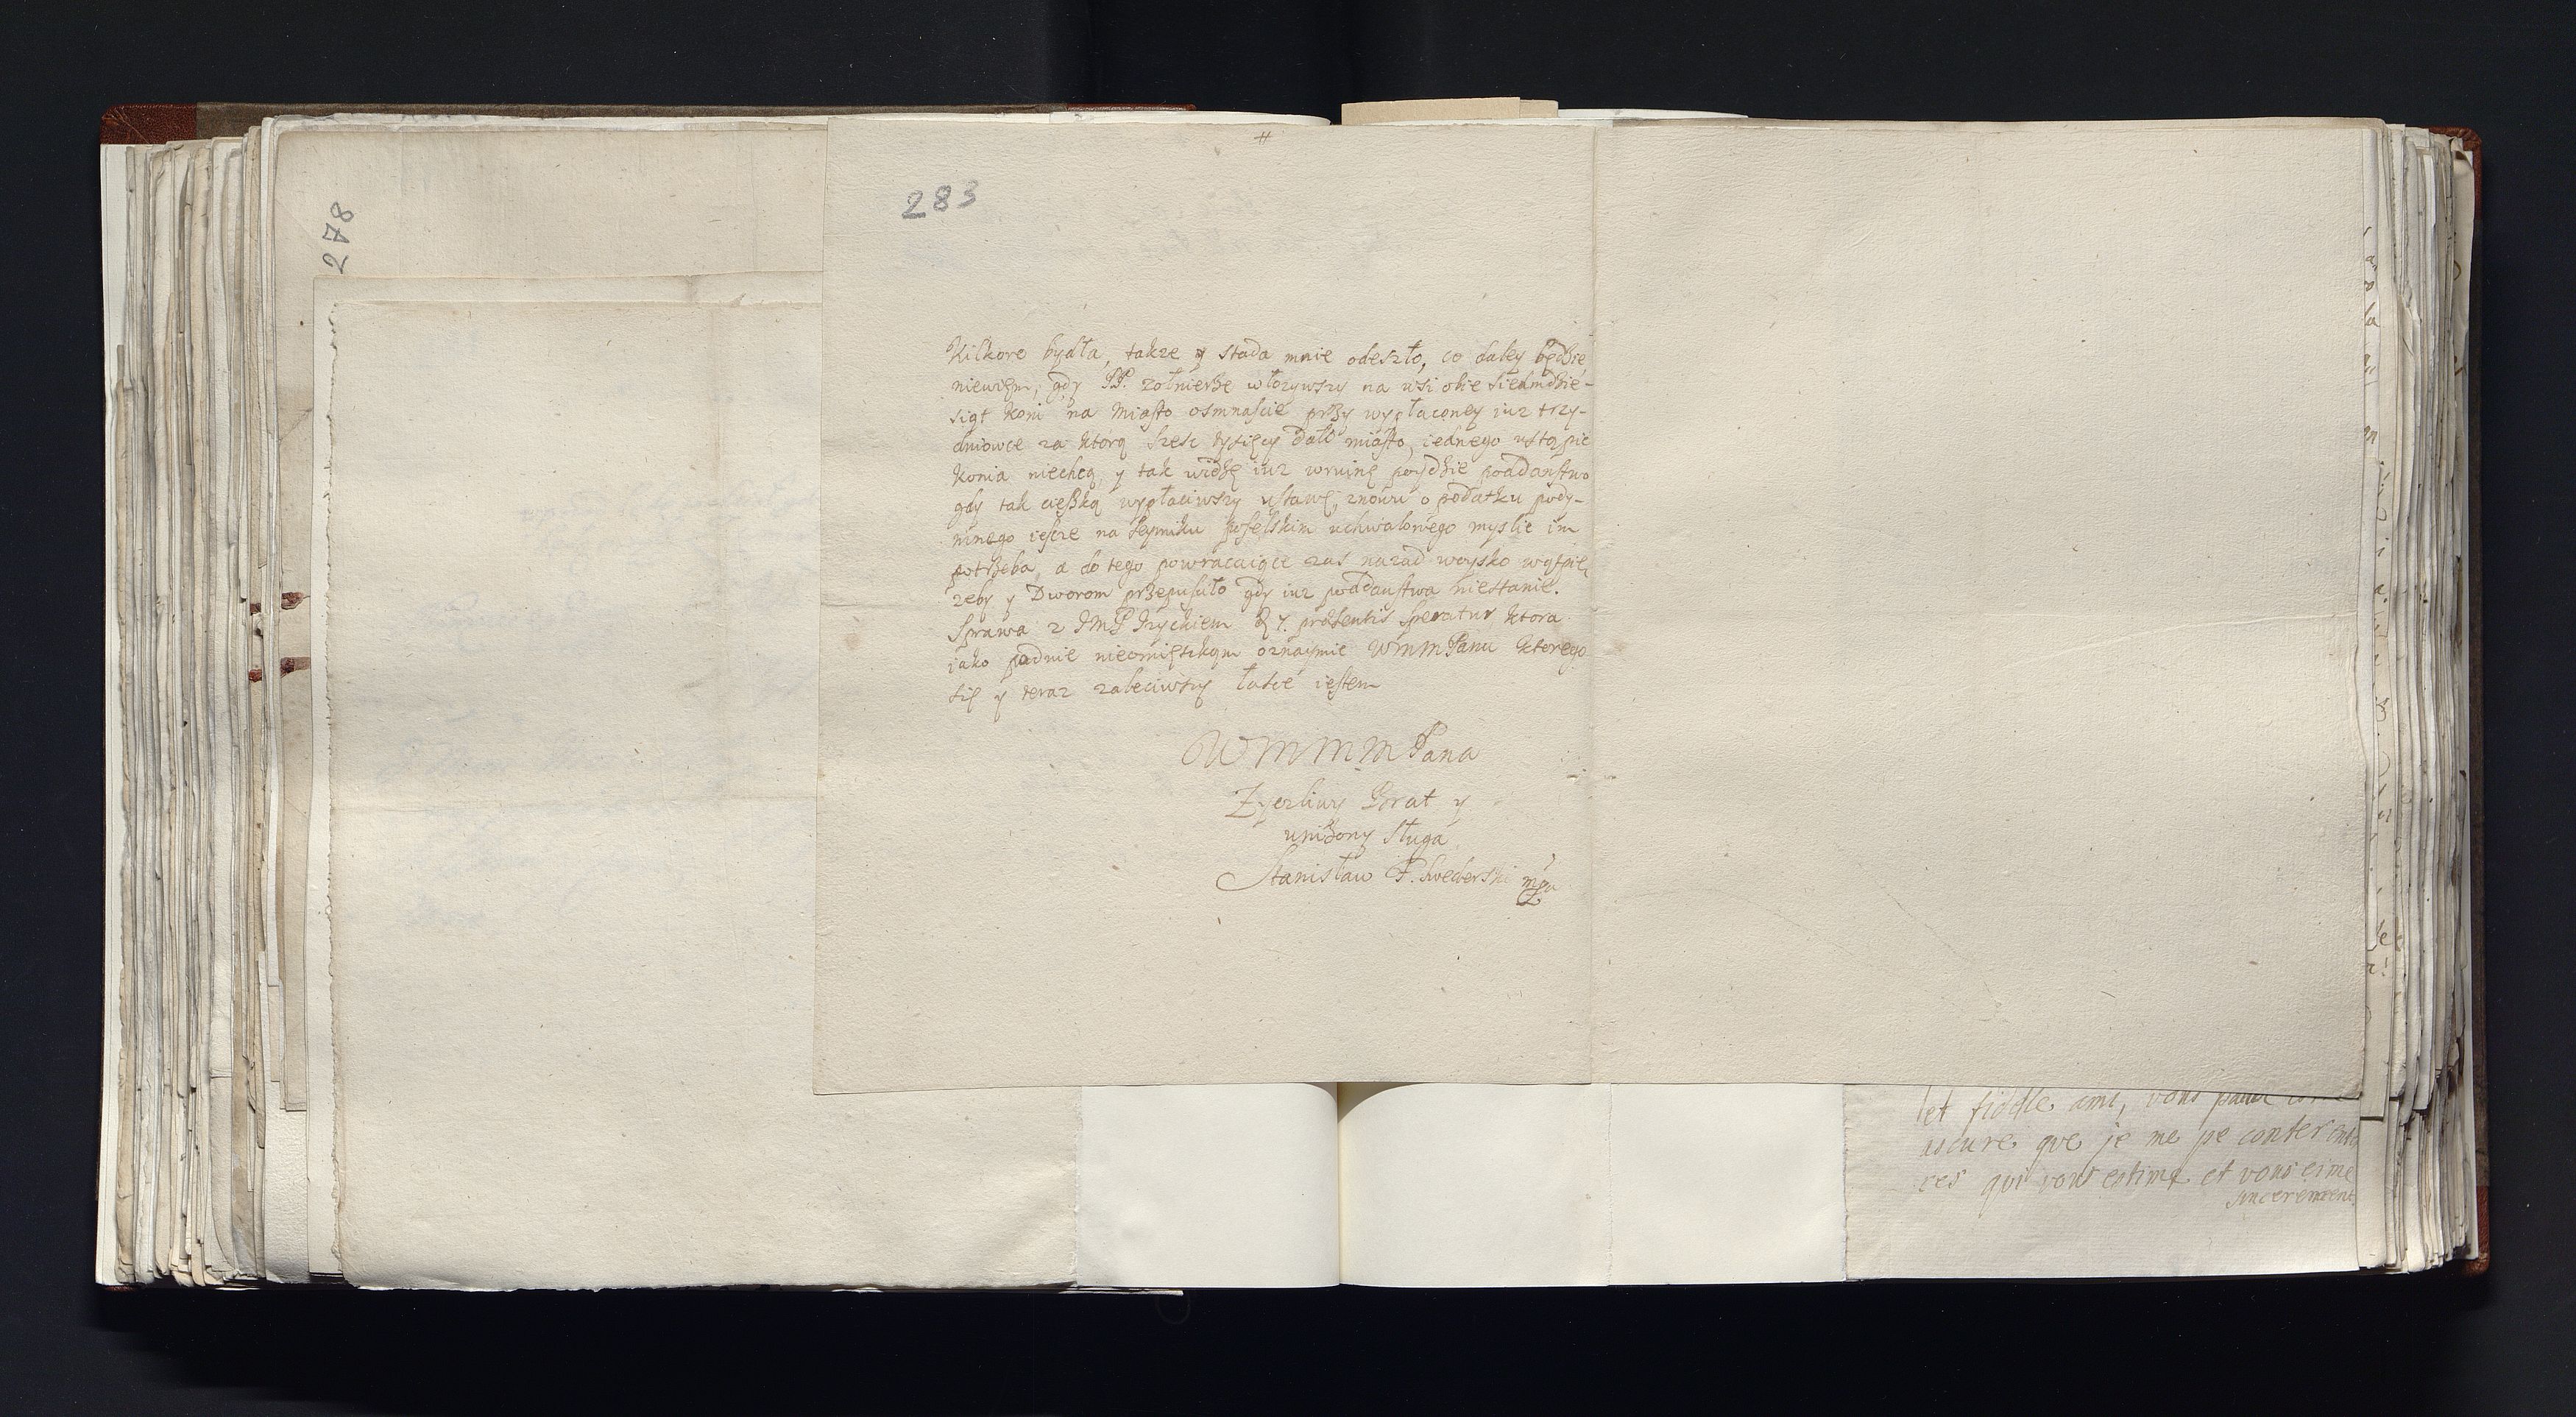 278
#
283
Kilkoro bydła, także y stada mnie odeszło, co daley będzie
niewiem, gdy PP. zołnierze włozywszy na wsi obie siedmdzie-
siąt koni na Miasto osmnascie przy wypłaconey iuz trzy-
dniowce za ktorą szesc tysięcy dało miasto, iednego ustąpic
konia niechcą, y tak widzę iuz wruinę poydzie poddanstwo
gdy tak cięszką wypłaciwszy ustawę, znowu o podatku pody-
mnego ieszcze na Seymiku poselskim uchwalonego myslic im
potrzeba, a do tego powracaiące zas nazad woysko wątpię
zeby y Dworom przepusciło gdy iuz poddanstwa niestanie.
Sprawa z JMP 7. præsentis speratur ktora
iako padnie nieomięszkam oznaymic WMMPanu ktorego
się y teraz zaleciwszy łasce iestem
WMMM Pana
Zyczliwy Brat y
unizony sługa
Stanisław P. mpu
et fidelle ami, vous
que je me pe conter
res qui vous estime et vous eime
sincerement